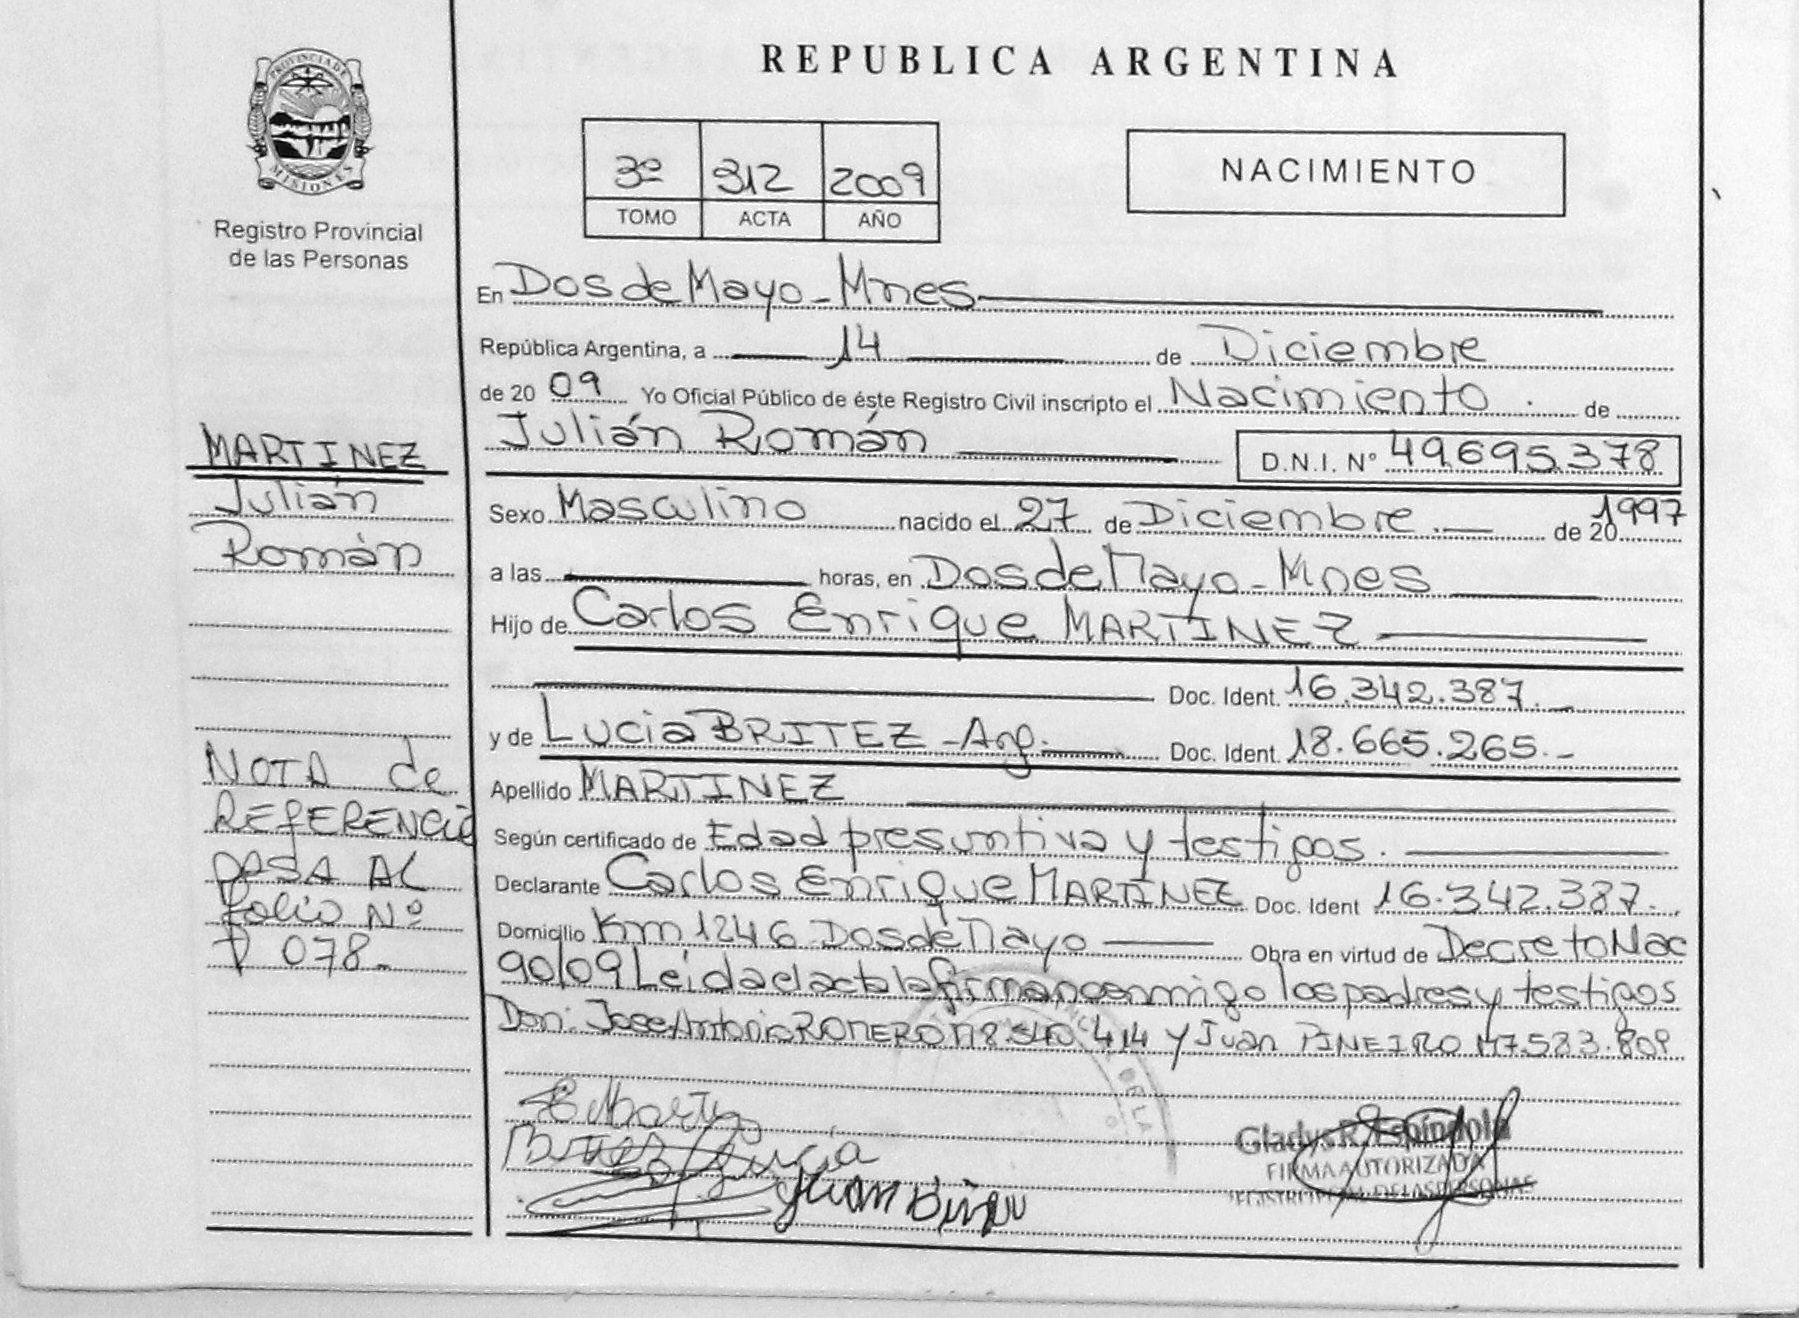 REPUBLICA ARGENTINA
PROVINCIA DE
MISIONES
Registro Provincial
de las Personas
3º 312 2009
TOMO ACTA AÑO
NACIMIENTO
En Dos de Mayo - Mnes
República Argentina, a 14 de Diciembre
de 2009 Yo Oficial Público de éste Registro Civil inscripto el Nacimiento . de
Julián Román D.N.I. Nº 49.695.378
Sexo Masculino nacido el 27 de Diciembre . de 20 1997
a las horas, en Dos de Mayo - Mnes
Hijo de Carlos Enrique MARTINEZ
Doc. Ident. 16.342.387.
y de Lucia BRITEZ - Arg. Doc. Ident. 18.665.265.-
Apellido MARTINEZ
Según certificado de Edad presuntiva y testigos.
Declarante Carlos Enrique MARTINEZ Doc. Ident 16.342.387.
Domicilio Km 1246 Dos de Mayo Obra en virtud de Decreto Nac
90/09 Leida el acta la firman conmigo los padres y testigos
Don: Jose Antonio ROMERO M8.540.414 y Juan PINEIRO M7.583.809
MARTINEZ
Julián
Román
NOTA de
REFERENCIA
PASA AL
folio Nº
078.-
Britez Lucia
Juan
DE LA
Gladys R. Espindola
FIRMA AUTORIZADA
REGISTRO PCIAL. DE LAS PERSONAS